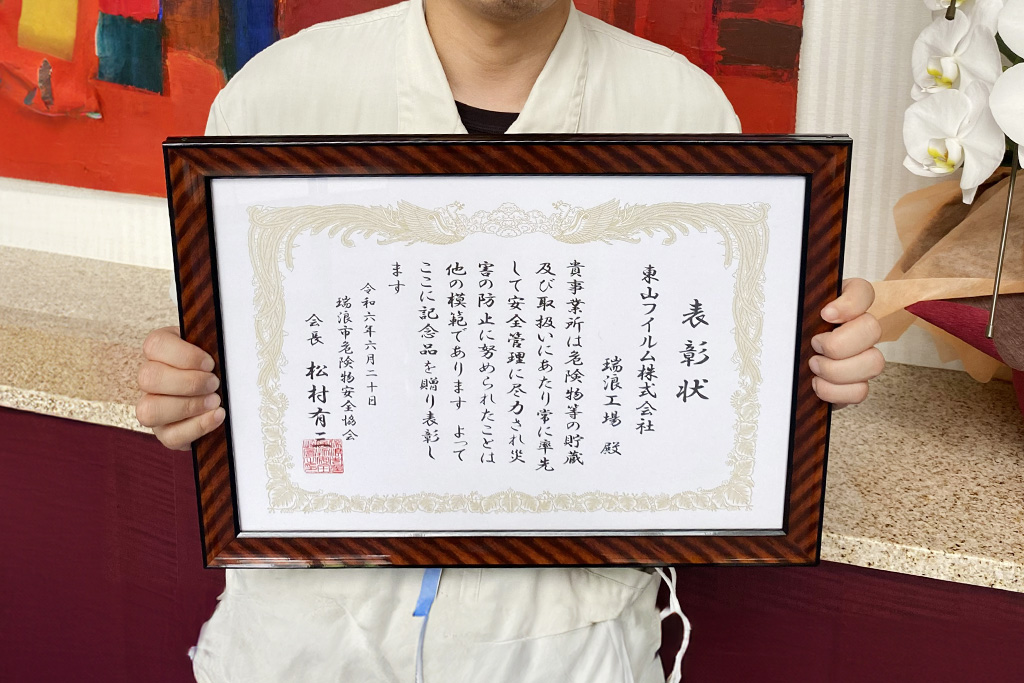 表彰状
東山フイルム株式会社
瑞浪工場 殿
貴事業所は危険物等の貯蔵
及び取扱いにあたり常に率先
して安全管理に尽力され災
害の防止に努められたことは
他の模範であります よって
ここに記念品を贈り表彰し
ます
令和六年六月二十日
瑞浪市危険物安全協会
会長 松村有二